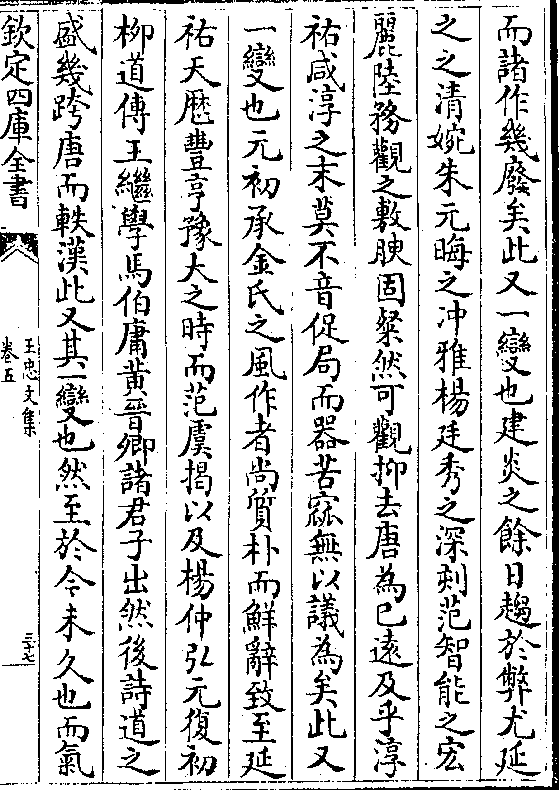 而諸作幾廢矣此又一變也建炎之餘日趨於弊尤延
之之清婉朱元晦之冲雅楊廷秀之深刻范智能之宏
麗陸務觀之敷腴固粲然可觀抑去唐為已遠及乎淳
祐咸淳之末莫不音促局而器苦窳無以議為矣此又
一變也元初承金氏之風作者尚質朴而鮮辭致至延
祐天厯豐亨豫大之時而范虞揭以及楊仲弘元復初
柳道傳王繼學馬伯庸黄晉卿諸君子出然後詩道之
盛幾跨唐而軼漢此又其一變也然至於今未久也而氣
欽定四庫全書
王忠文集
卷五
三十七